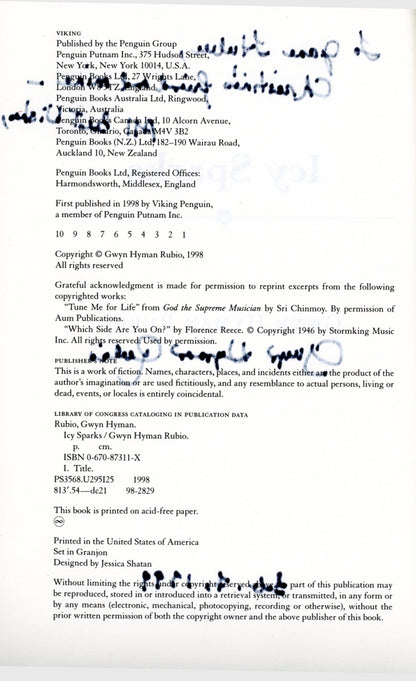 VIKING
Published by the Penguin Group
Penguin Putnam Inc., 375 Hudson Street,
New York, New York 10014, U.S.A.
Penguin Books Ltd, 27 Wrights Lane,
London W8 5TZ, England
Penguin Books Australia Ltd, Ringwood,
Victoria, Australia
Penguin Books Canada Ltd, 10 Alcorn Avenue,
Toronto, Ontario, Canada M4V 3B2
Penguin Books (N.Z.) Ltd, 182–190 Wairau Road,
Auckland 10, New Zealand
Penguin Books Ltd, Registered Offices:
Harmondsworth, Middlesex, England
First published in 1998 by Viking Penguin,
a member of Penguin Putnam Inc.
10 9 8 7 6 5 4 3 2 1
Copyright © Gwyn Hyman Rubio, 1998
All rights reserved
Grateful acknowledgment is made for permission to reprint excerpts from the following
copyrighted works:
"Tune Me for Life" from God the Supreme Musician by Sri Chinmoy. By permission of
Aum Publications.
"Which Side Are You On?" by Florence Reece. © Copyright 1946 by Stormking Music
Inc. All rights reserved. Used by permission.
PUBLISHER'S NOTE
This is a work of fiction. Names, characters, places, and incidents either are the product of the
author's imagination or are used fictitiously, and any resemblance to actual persons, living or
dead, events, or locales is entirely coincidental.
LIBRARY OF CONGRESS CATALOGING IN PUBLICATION DATA
Rubio, Gwyn Hyman.
Icy Sparks / Gwyn Hyman Rubio.
p. cm.
ISBN 0-670-87311-X
I. Title.
PS3568.U295I25 1998
813'.54—dc21 98-2829
This book is printed on acid-free paper.
Printed in the United States of America
Set in Granjon
Designed by Jessica Shatan
Without limiting the rights under copyright reserved above, no part of this publication may
be reproduced, stored in or introduced into a retrieval system, or transmitted, in any form or
by any means (electronic, mechanical, photocopying, recording or otherwise), without the
prior written permission of both the copyright owner and the above publisher of this book.